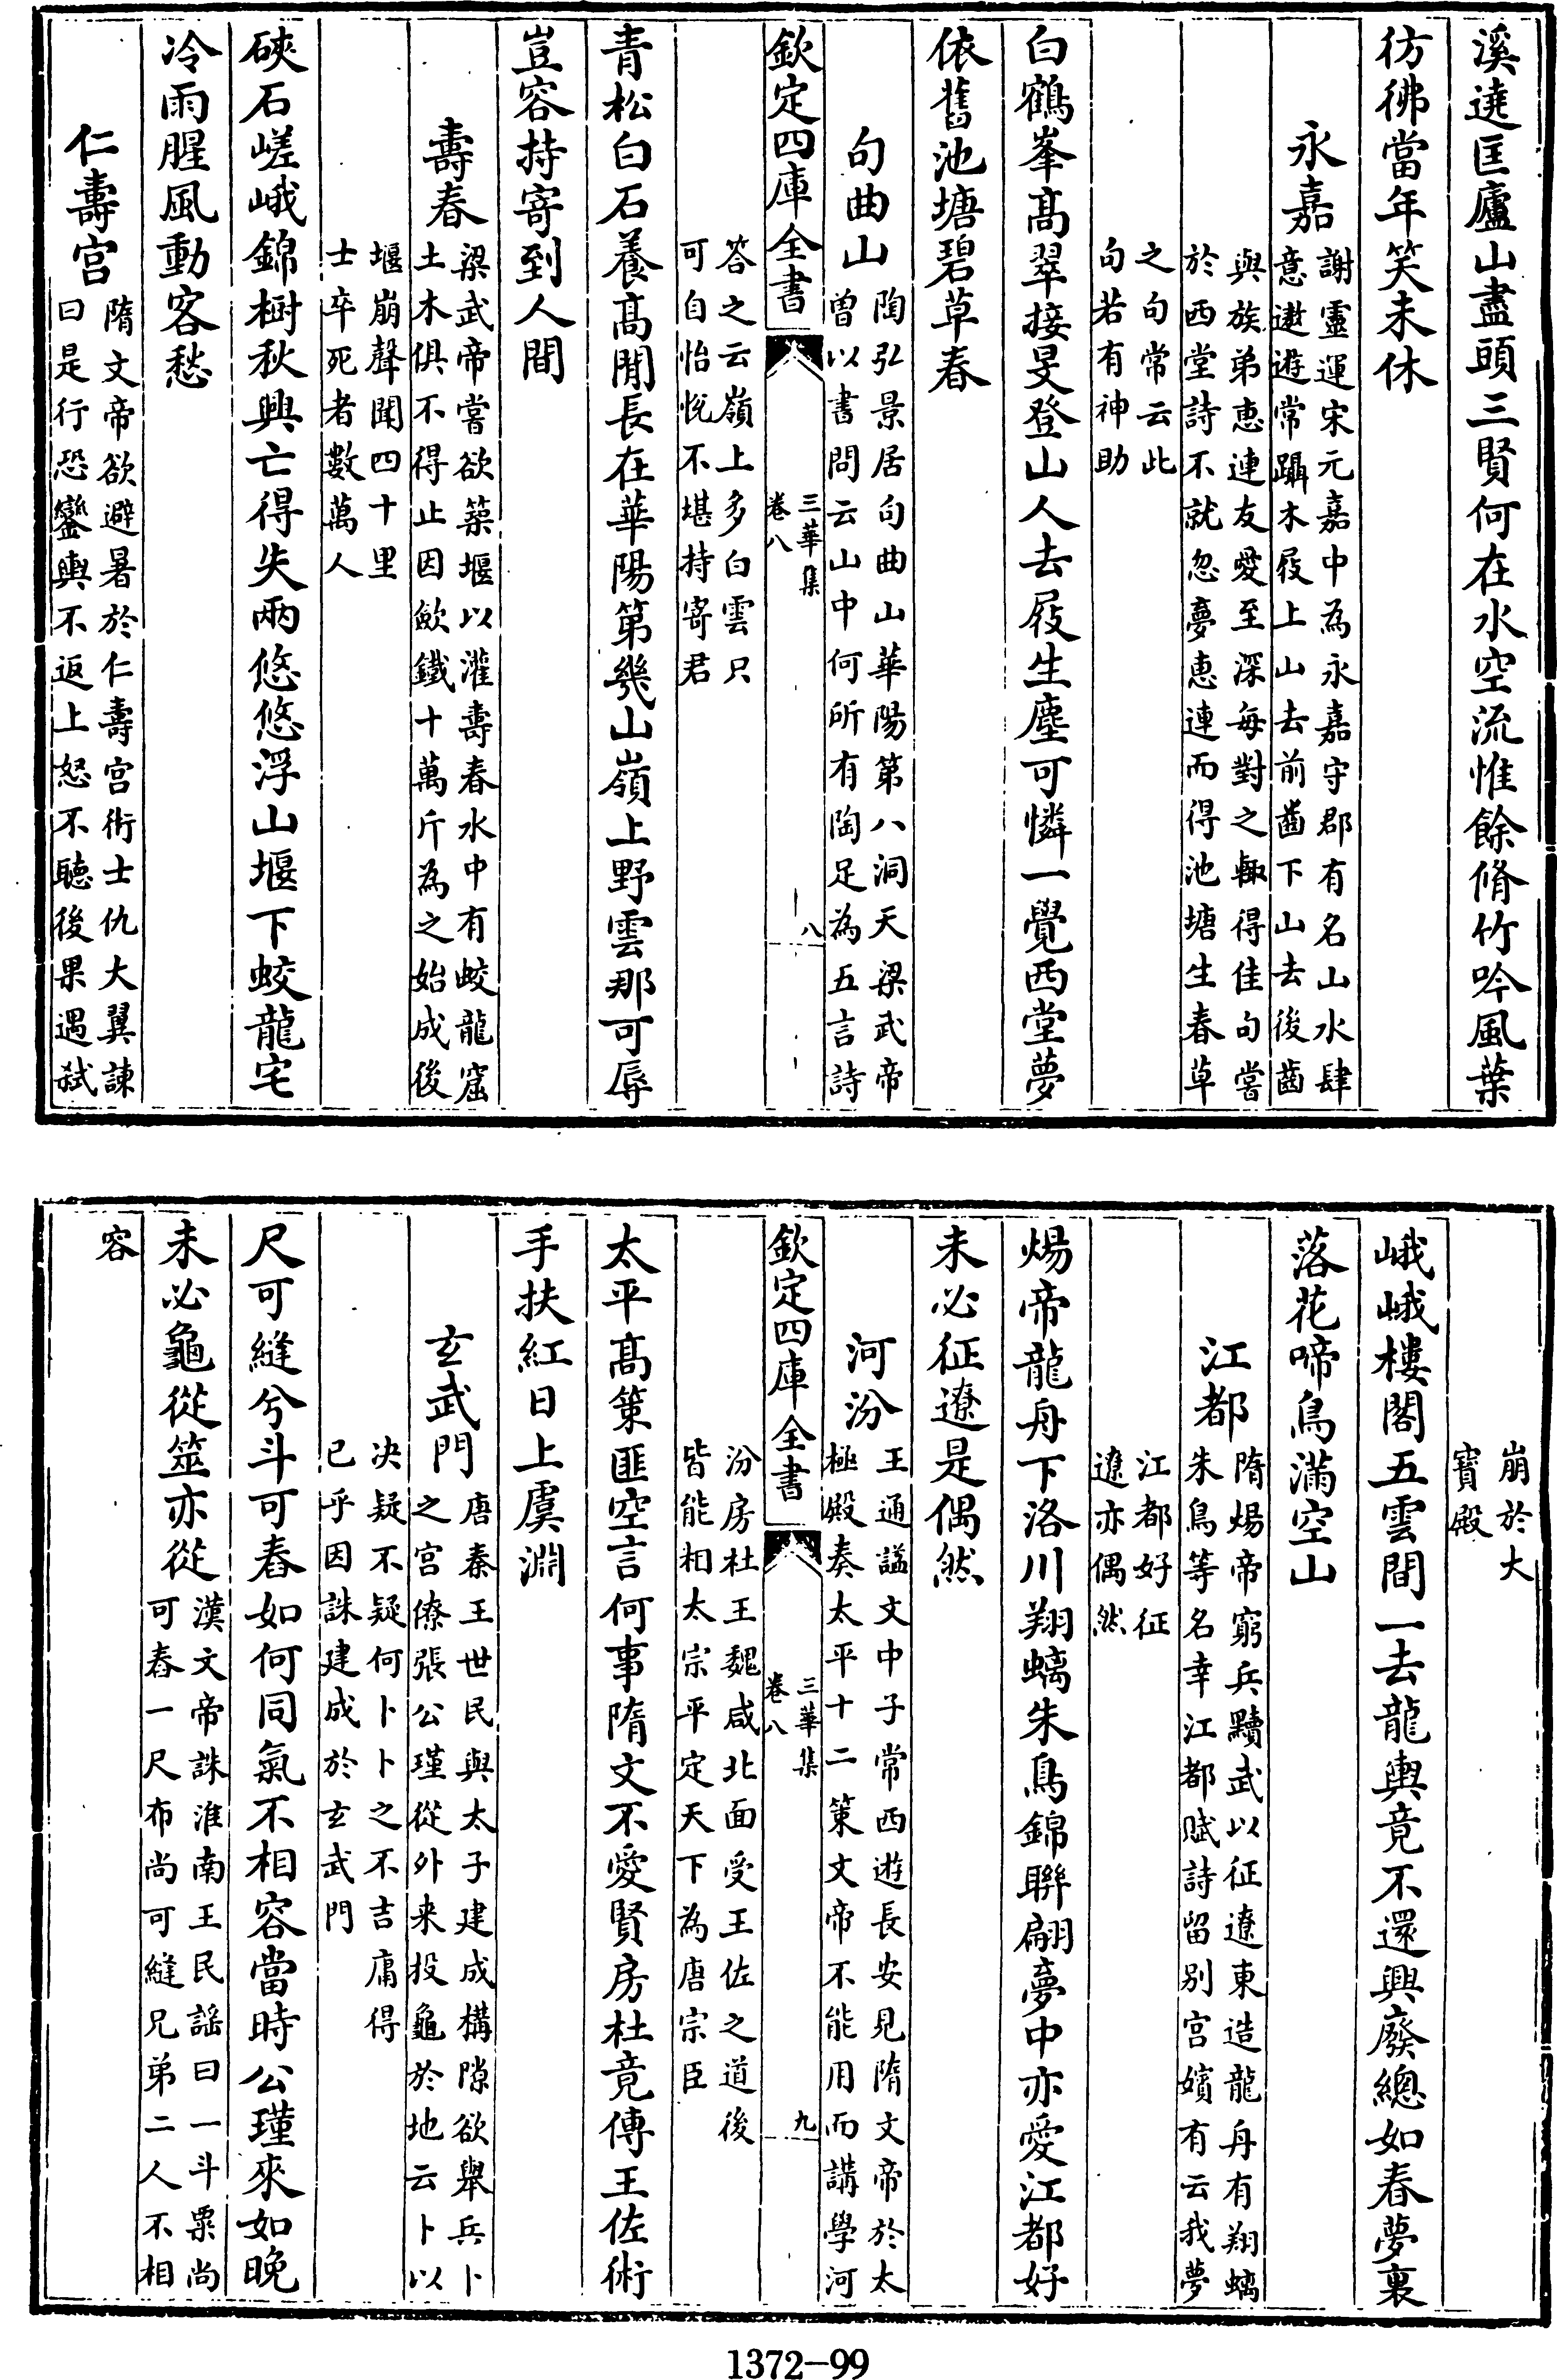 溪遶匡廬山盡頭三賢何在水空流惟餘脩竹吟風葉
彷彿當年笑未休
永嘉
謝靈運宋元嘉中為永嘉守郡有名山水肆
意遨遊常躡木屐上山去前齒下山去後齒
與族弟惠連友愛至深每對之輙得佳句嘗
於西堂詩不就忽夢惠連而得池塘生春草
之句常云此
句若有神助
白鶴峯髙翠接旻登山人去屐生塵可憐一覺西堂夢
依舊池塘碧草春
句曲山
陶弘景居句曲山華陽第八洞天梁武帝
曾以書問云山中何所有陶足為五言詩
欽定四庫全書
三華集
卷八
八
答之云嶺上多白雲只
可自怡悅不堪持寄君
青松白石養髙閒長在華陽第幾山嶺上野雲那可辱
豈容持寄到人間
壽春
梁武帝嘗欲築堰以灌壽春水中有蛟龍窟
土木俱不得止因歛鐵十萬斤為之始成後
堰崩聲聞四十里
士卒死者數萬人
硤石嵯峨錦樹秋興亡得失兩悠悠浮山堰下蛟龍宅
冷雨腥風動客愁
仁壽宮
隋文帝欲避暑於仁壽宮術士仇大翼諫
曰是行恐鑾輿不返上怒不聽後果遇弑
崩於大
寳殿
峨峨樓閣五雲間一去龍輿竟不還興廢總如春夢裏
落花啼鳥滿空山
江都
隋煬帝窮兵黷武以征遼東造龍舟有翔螭
朱鳥等名幸江都賦詩留别宮嬪有云我夢
江都好征
遼亦偶然
煬帝龍舟下洛川翔螭朱鳥錦聯翩夢中亦愛江都好
未必征遼是偶然
河汾
王通謚文中子常西遊長安見隋文帝於太
極殿奏太平十二策文帝不能用而講學河
欽定四庫全書
三華集
卷八
九
汾房杜王魏咸北面受王佐之道後
皆能相太宗平定天下為唐宗臣
太平髙策匪空言何事隋文不愛賢房杜竟傳王佐術
手扶紅日上虞淵
玄武門
唐秦王世民與太子建成構隙欲舉兵卜
之宮僚張公瑾從外来投龜於地云卜以
决疑不疑何卜卜之不吉庸得
已乎因誅建成於玄武門
尺可縫兮斗可舂如何同氣不相容當時公瑾來如晚
未必龜從筮亦從
漢文帝誅淮南王民謡曰一斗粟尚
可舂一尺布尚可縫兄弟二人不相
容
1372-99